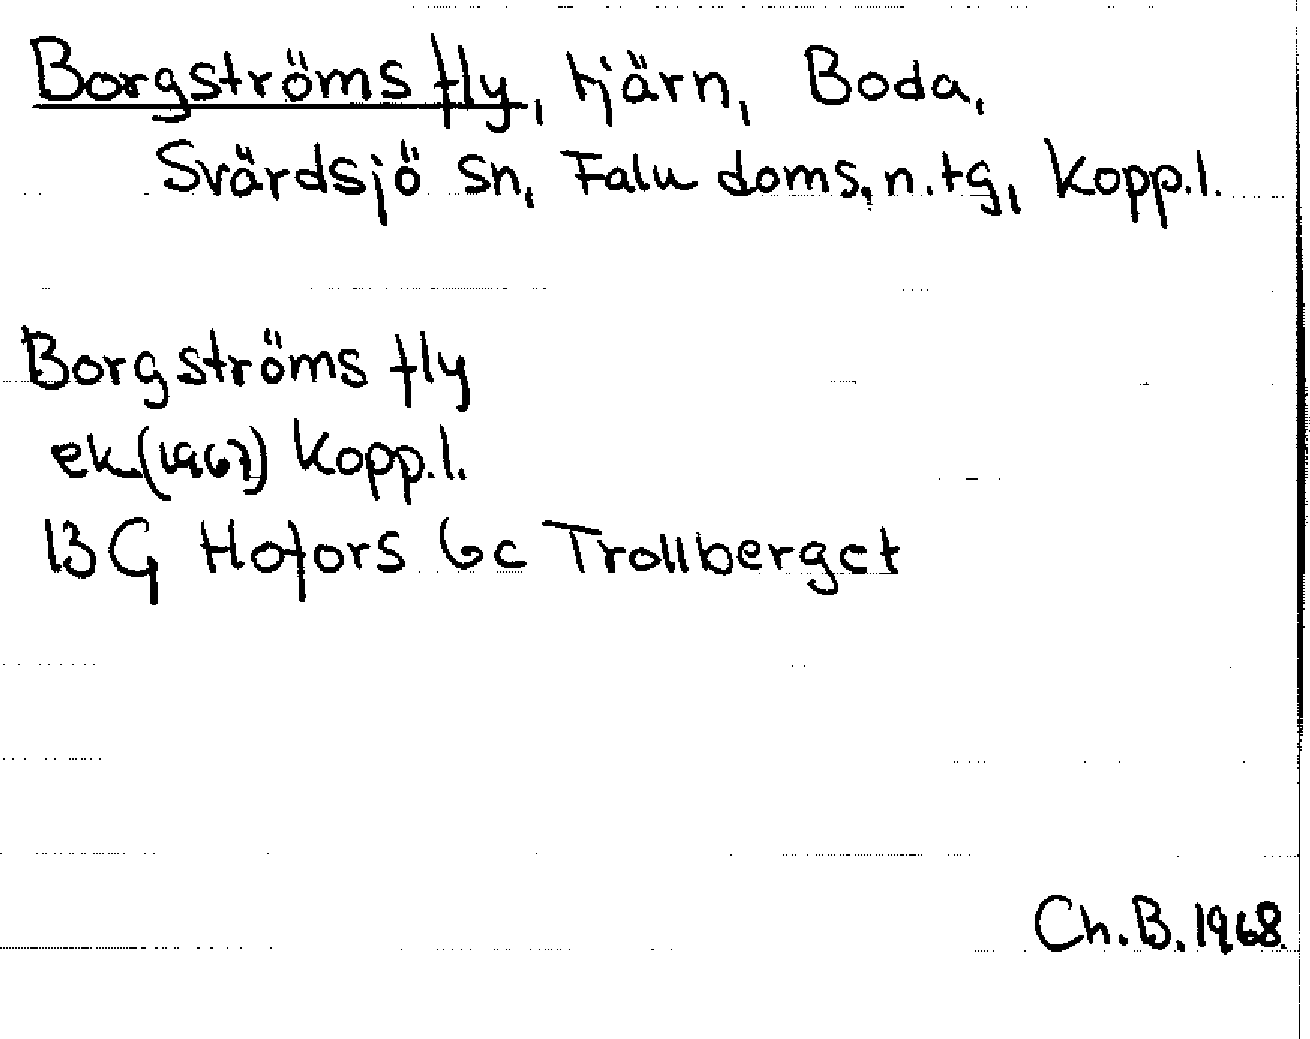 Borgströms fly, tjärn, Boda,
Svärdsjö sn, Falu doms. n. tg, Kopp.l.
Borgströms fly
ek(1967) Kopp.l.
13 G Hofors 6c Trollberget
Ch.B. 1968